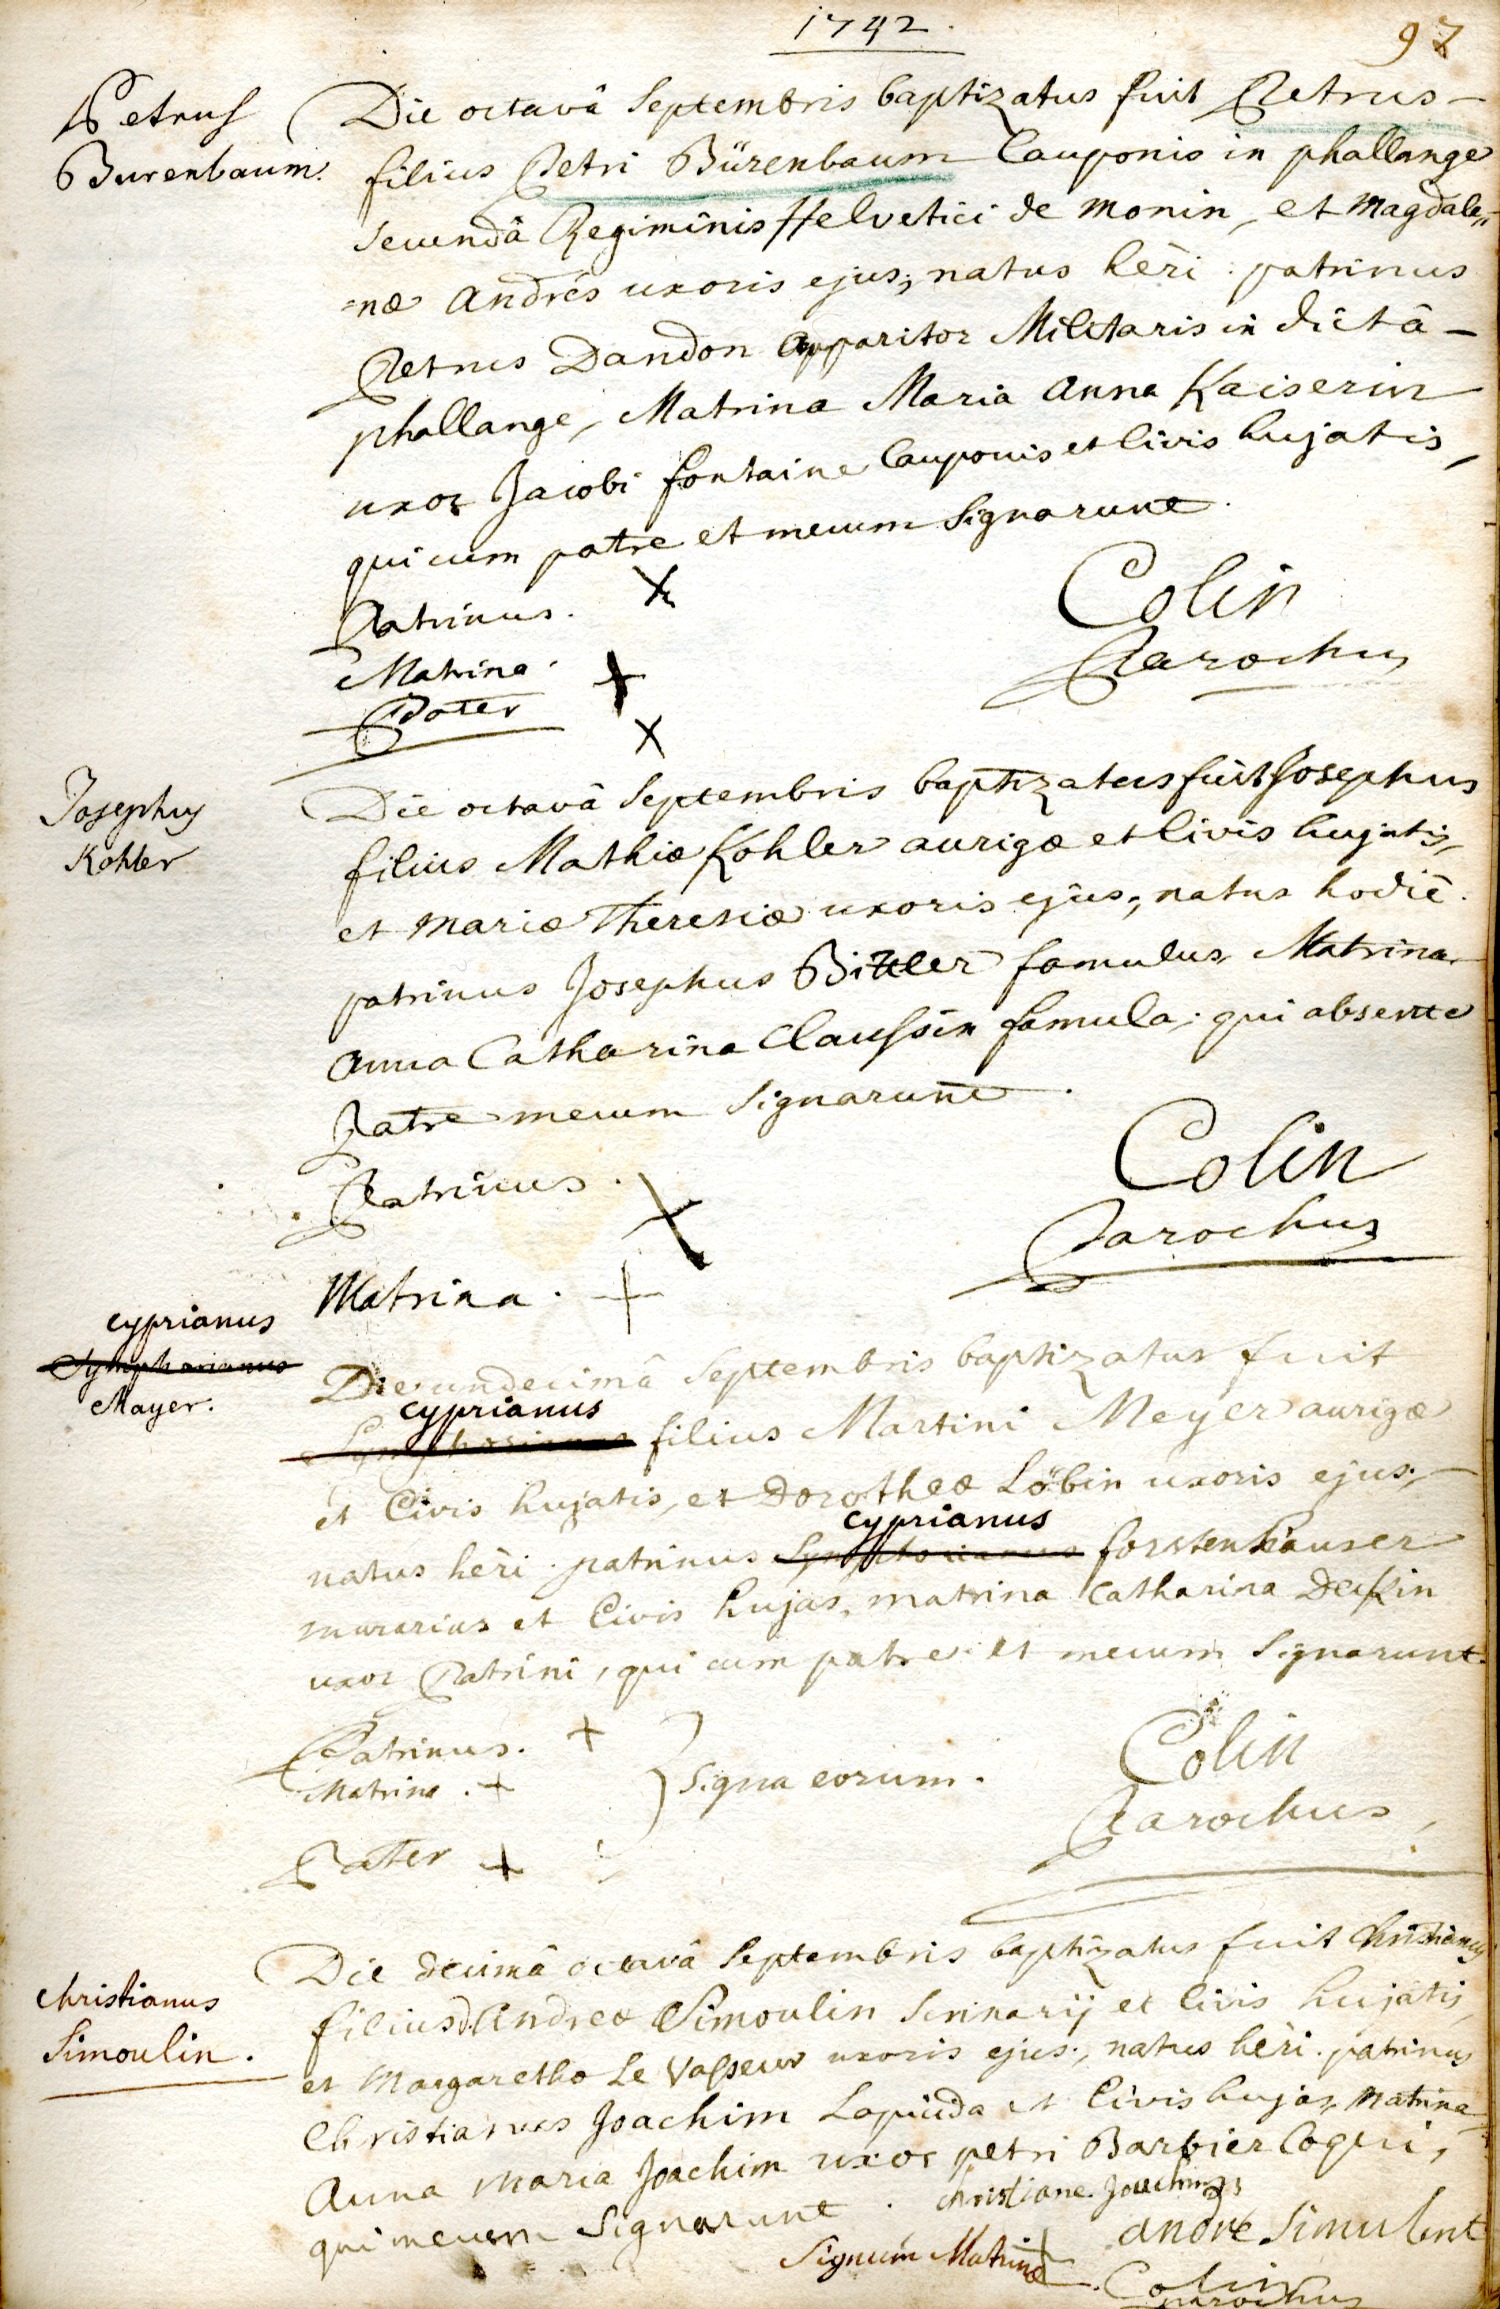 1742.
97
Petrus
Burenbaum.
Die octavâ Septembris baptizatus fuit Petrus
filius Petri Bürenbaum Cauponis in phallange
secundâ Regiminis Helvetici de Monin, et Magdale,,
=næ Andrés uxoris ejus; natus hèri : patrinus
Petrus Dandon Apparitor Militaris in dictâ
phallange, Matrina Maria Anna Kaiserin
uxor Jacobi fontaine Cauponis et Civis hujatis,
qui cum patre et mecum Signarunt.
Patrinus. X
Matrina. +
Pater X
Colin
Parochus
Josephus
Kohler
Die octavâ Septembris baptizatus fuit Josephus
filius Mathiæ Kohler aurigæ et Civis hujatis,
et Mariæ Theresiæ uxoris ejus; natus hodiè.
patrinus Josephus Bittler famulus Matrina
Anna Catharina Claussin famula; qui absente
Patre mecum Signarunt.
Patrinus. X
Matrina. +
Colin
Parochus
cyprianus
Symphorianus
Mayer.
Die undecimâ Septembris baptizatus fuit
cyprianus
Symphorianus filius Martini Meyer aurigæ
et Civis hujatis, et Dorotheæ Löbin uxoris ejus;
cyprianus
natus hèri. patrinus Symphorianus forstenhauser
murarius et Civis hujas, matrina Catharina
uxor Patrini, qui cum patre et mecum Signarunt.
Patrinus. +
Matrina. +
Pater +
} Signa eorum.
Colin
Parochus
christianus
Simoulin.
Die decimâ octavâ Septembris baptizatus fuit Christianus
filius Andreæ Simoulin Scrinarij et Civis hujatis,
et Margarethæ Le Vasseur uxoris ejus; natus hèri. patrinus
Christianus Joachim Lapicida et Civis hujas, Matrina
Anna Maria Joachim uxor petri Barbier Coqui,
qui mecum Signarunt.
christiane Joachims
andre Simulent
Signum Matrinæ +
Colin
parochus